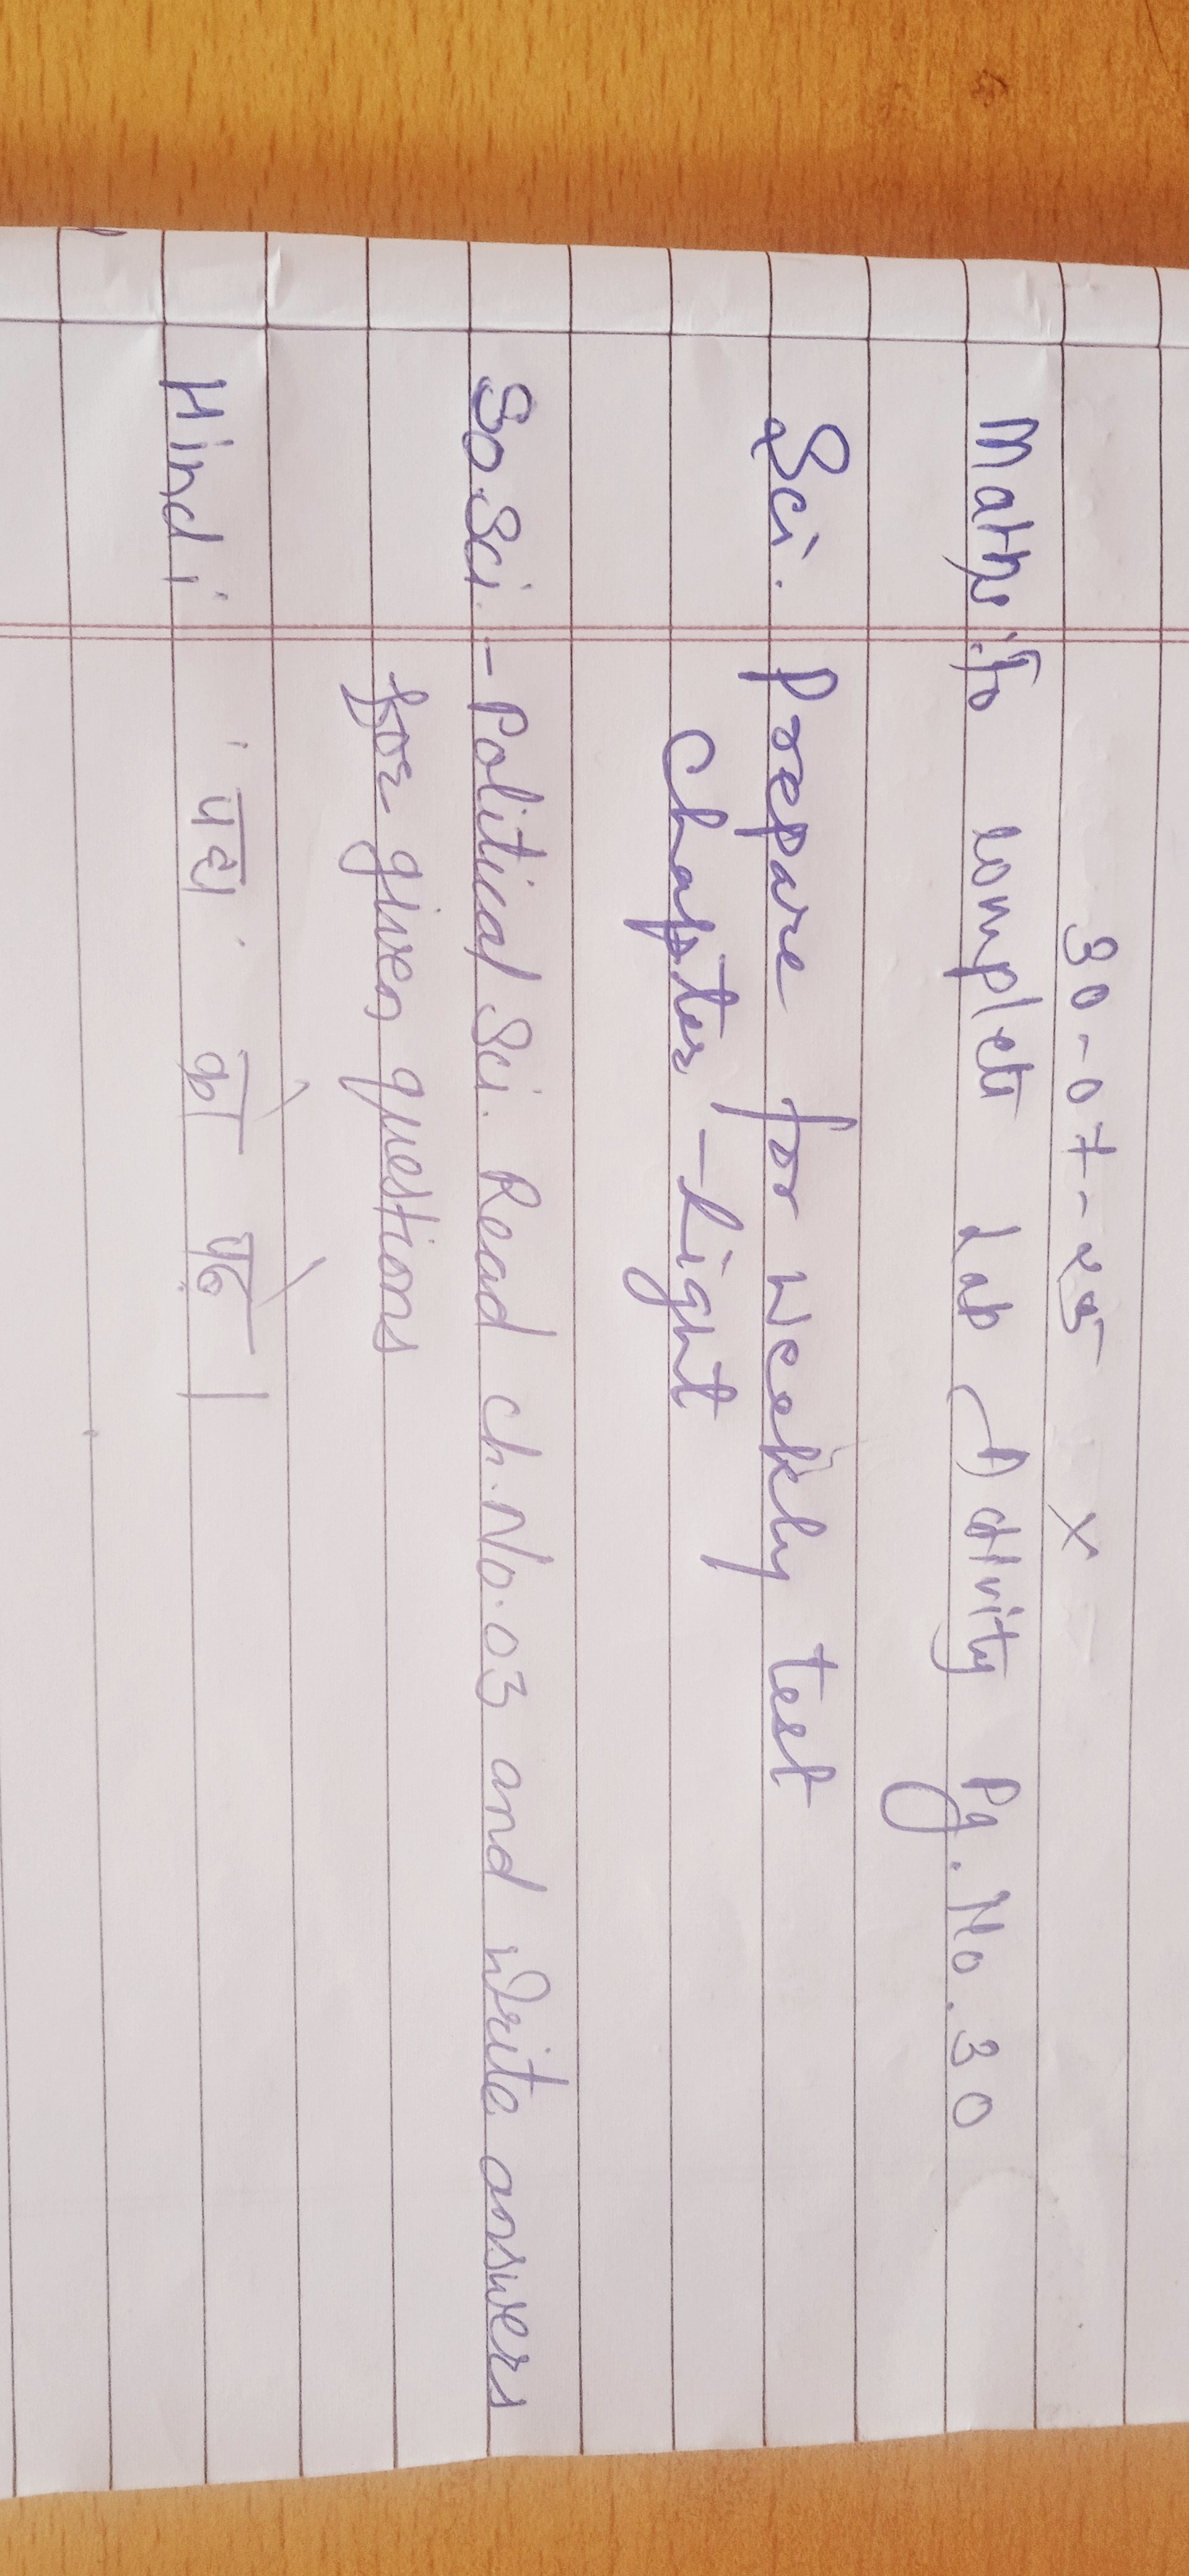 30-07-25 X
Maths :To complete Lab Activity Pg.No.30
Sci. Prepare for weekly test
Chapter - Light
So.Sci. - Political Sci. Read ch.No.03 and write answers
for given questions
Hindi 'पद्य' को पढ़े ।